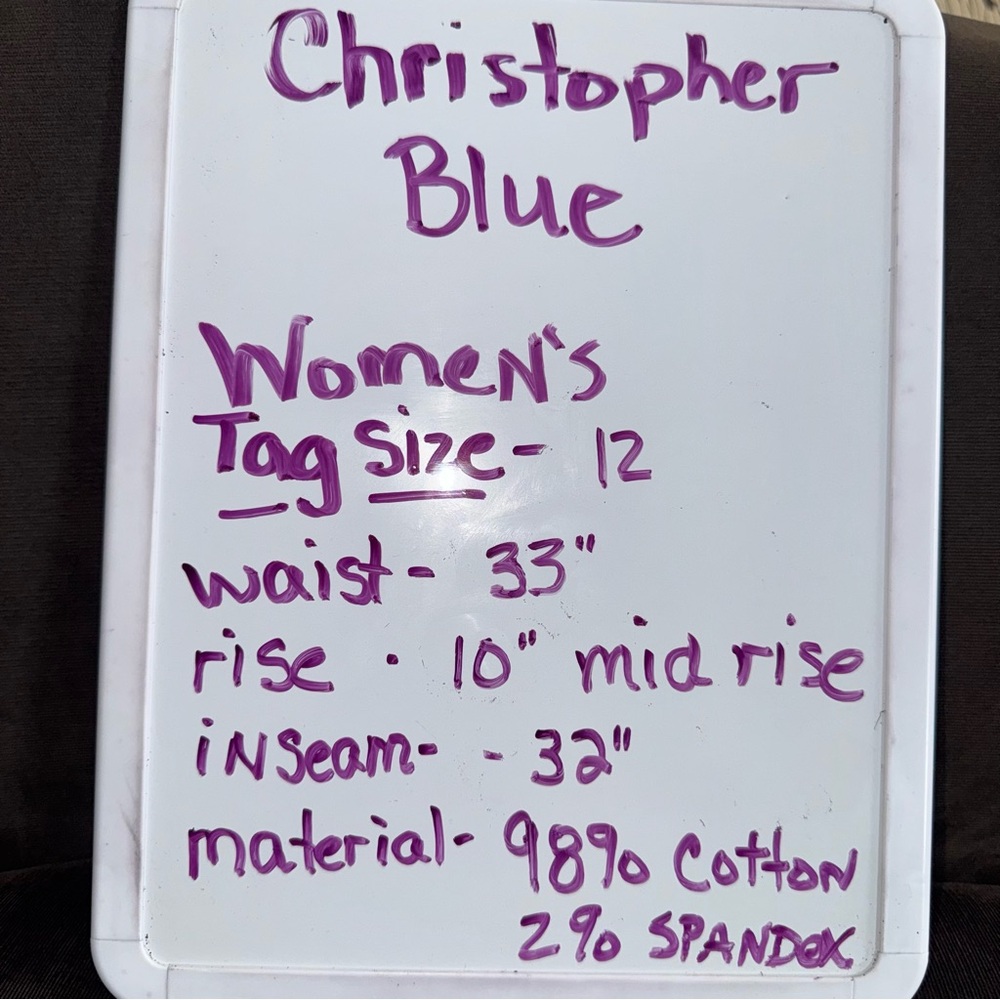 Christopher
Blue
Women's
Tag Size - 12
waist - 33"
rise - 10" mid rise
inseam- - 32"
material - 98% Cotton
2% SPANDEX